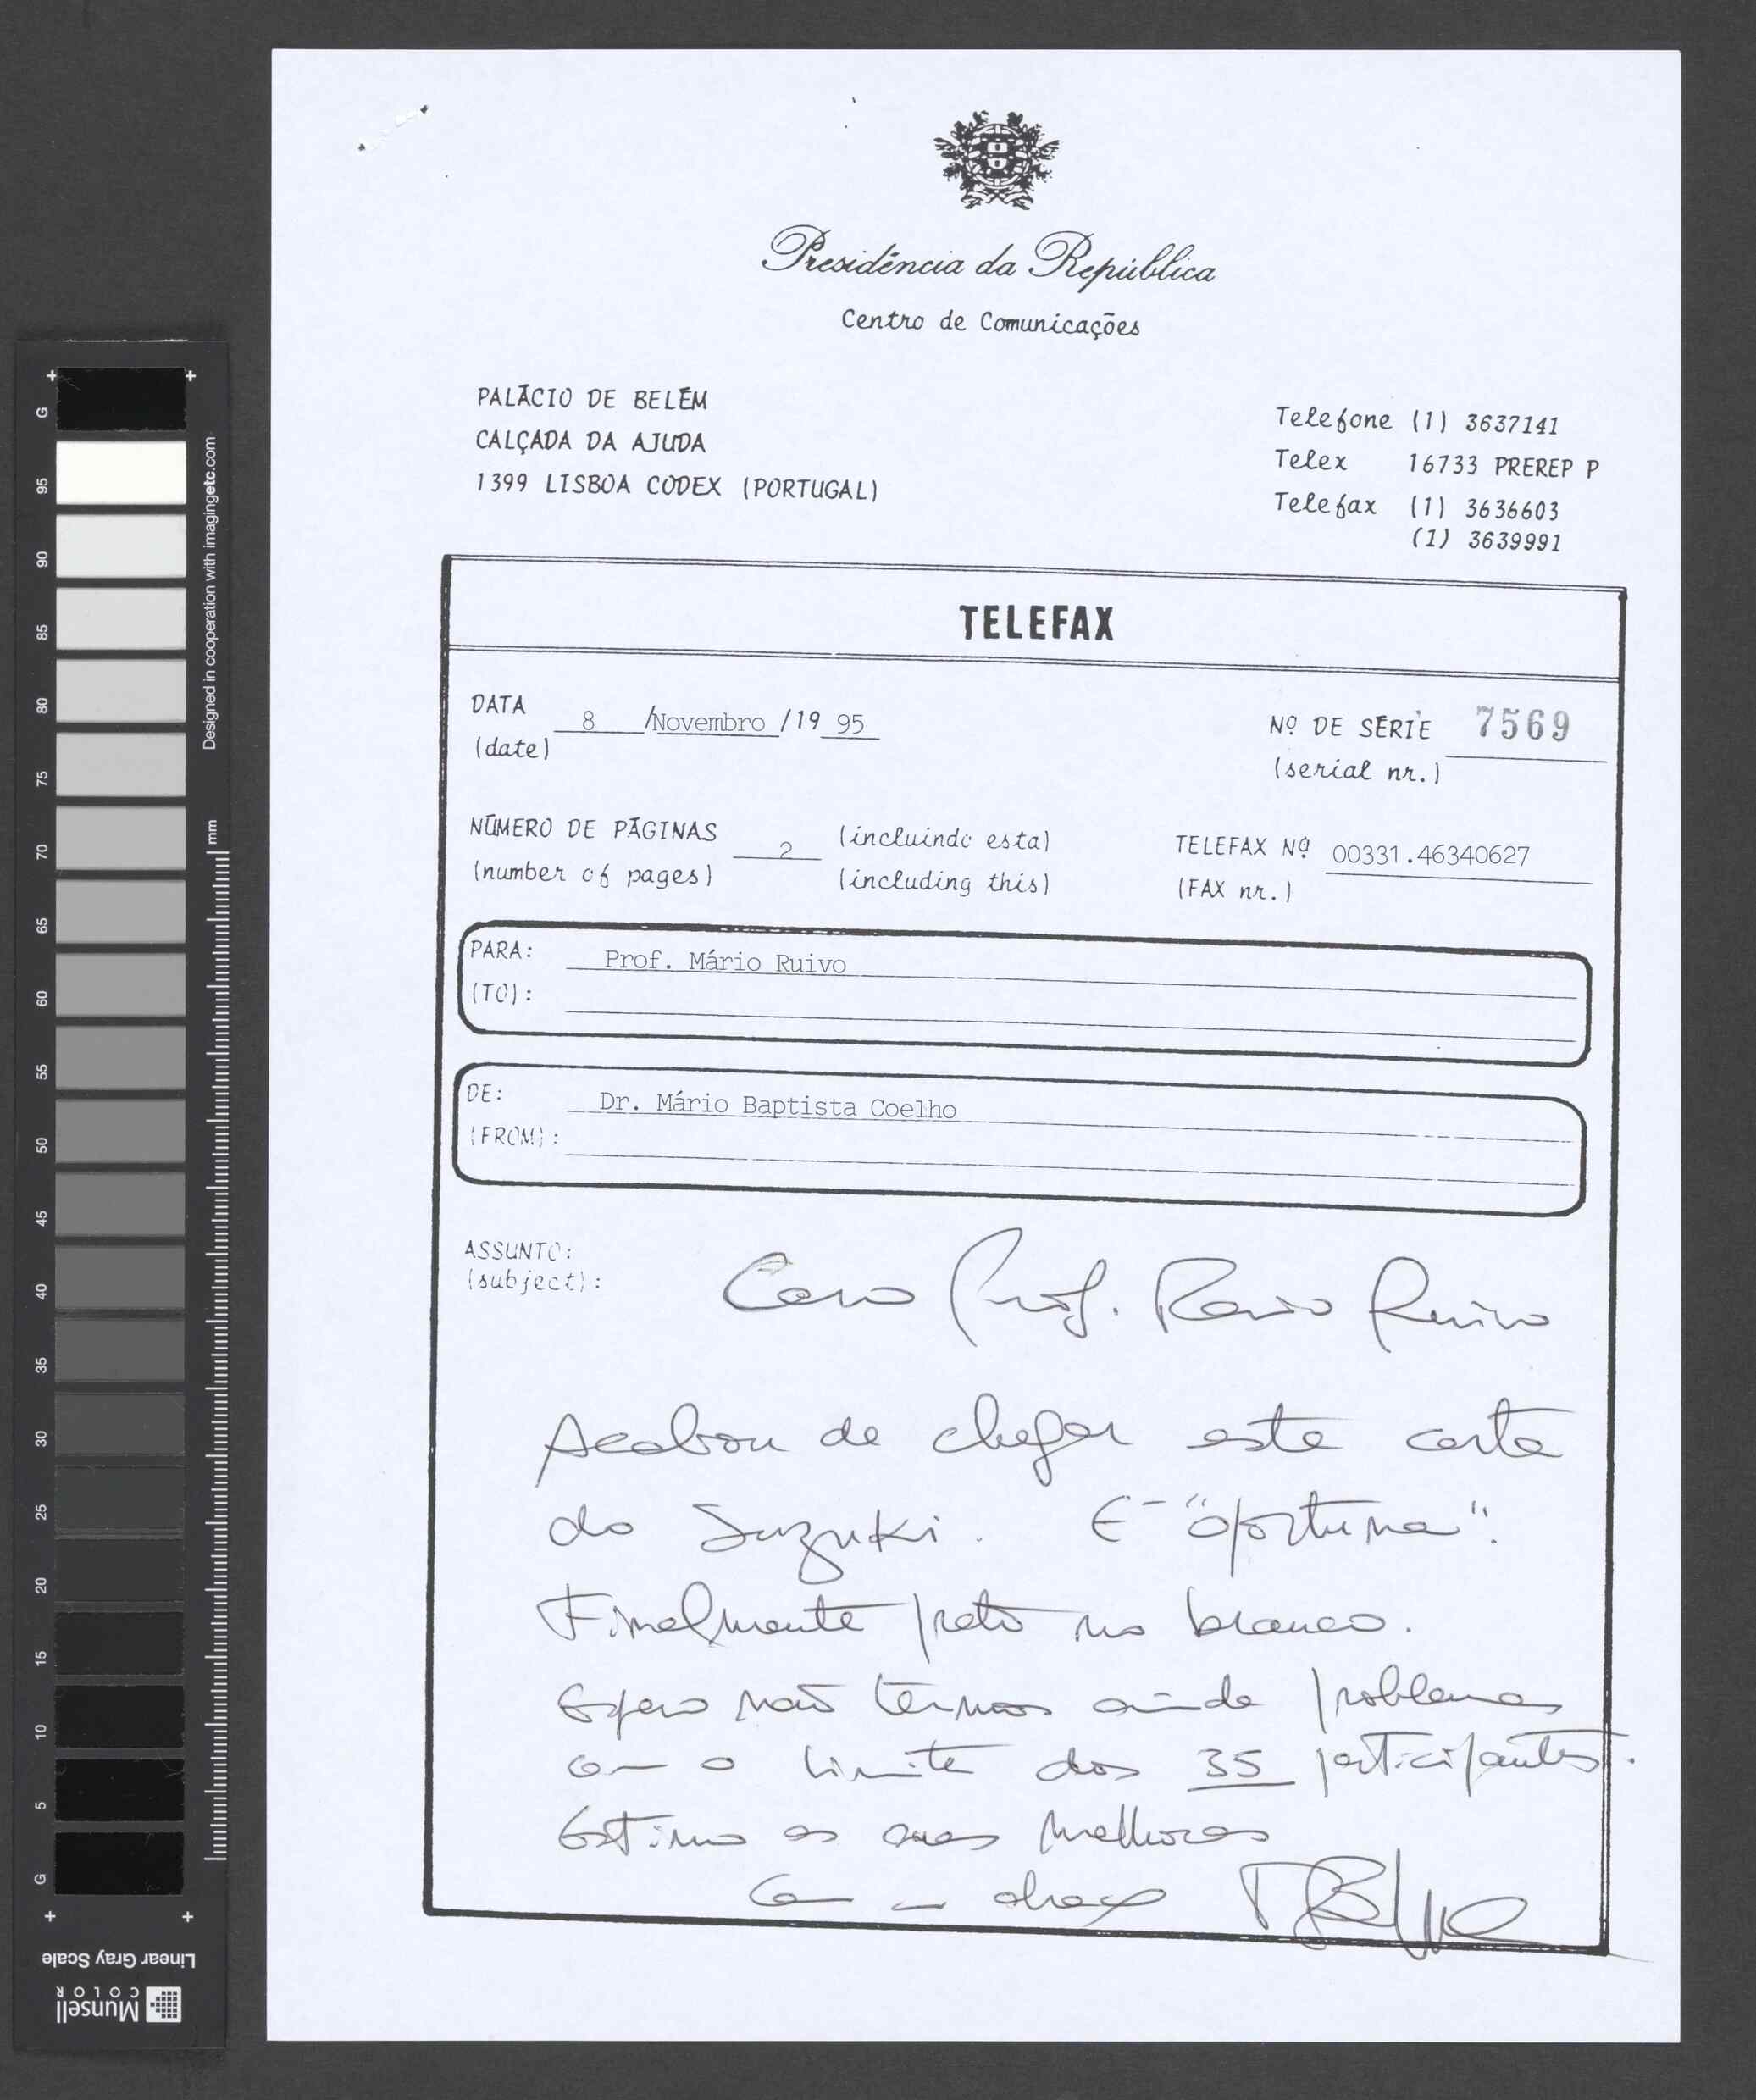 Presidência da República
Centro de Comunicações
PALÁCIO DE BELÉM
CALÇADA DA AJUDA
1399 LISBOA CODEX (PORTUGAL)
Telefone (1) 3637141
Telex 16733 PREREP P
Telefax (1) 3636603
(1) 3639991
TELEFAX
DATA 8 /Novembro /19 95
(date)
Nº DE SÉRIE 7569
(serial nr.)
NÚMERO DE PÁGINAS 2 (incluindo esta)
(number of pages) (including this)
TELEFAX Nº 00331.46340627
(FAX nr.)
PARA: Prof. Mário Ruivo
(TO):
DE: Dr. Mário Baptista Coelho
(FROM):
ASSUNTO:
(subject):
Caro Prof. Ruivo
Acabou de chegar esta carta
do Suzuki. É "oportuna".
Finalmente preto no branco.
Espero não termos ainda problemas
com o limite dos 35 participantes.
Estimo as suas melhoras
Com um abraço
G 95 90 85 80 75 70 65 60 55 50 45 40 35 30 25 20 15 10 5 G
Designed in cooperation with imagingetc.com
mm
Linear Gray Scale
Munsell
COLOR